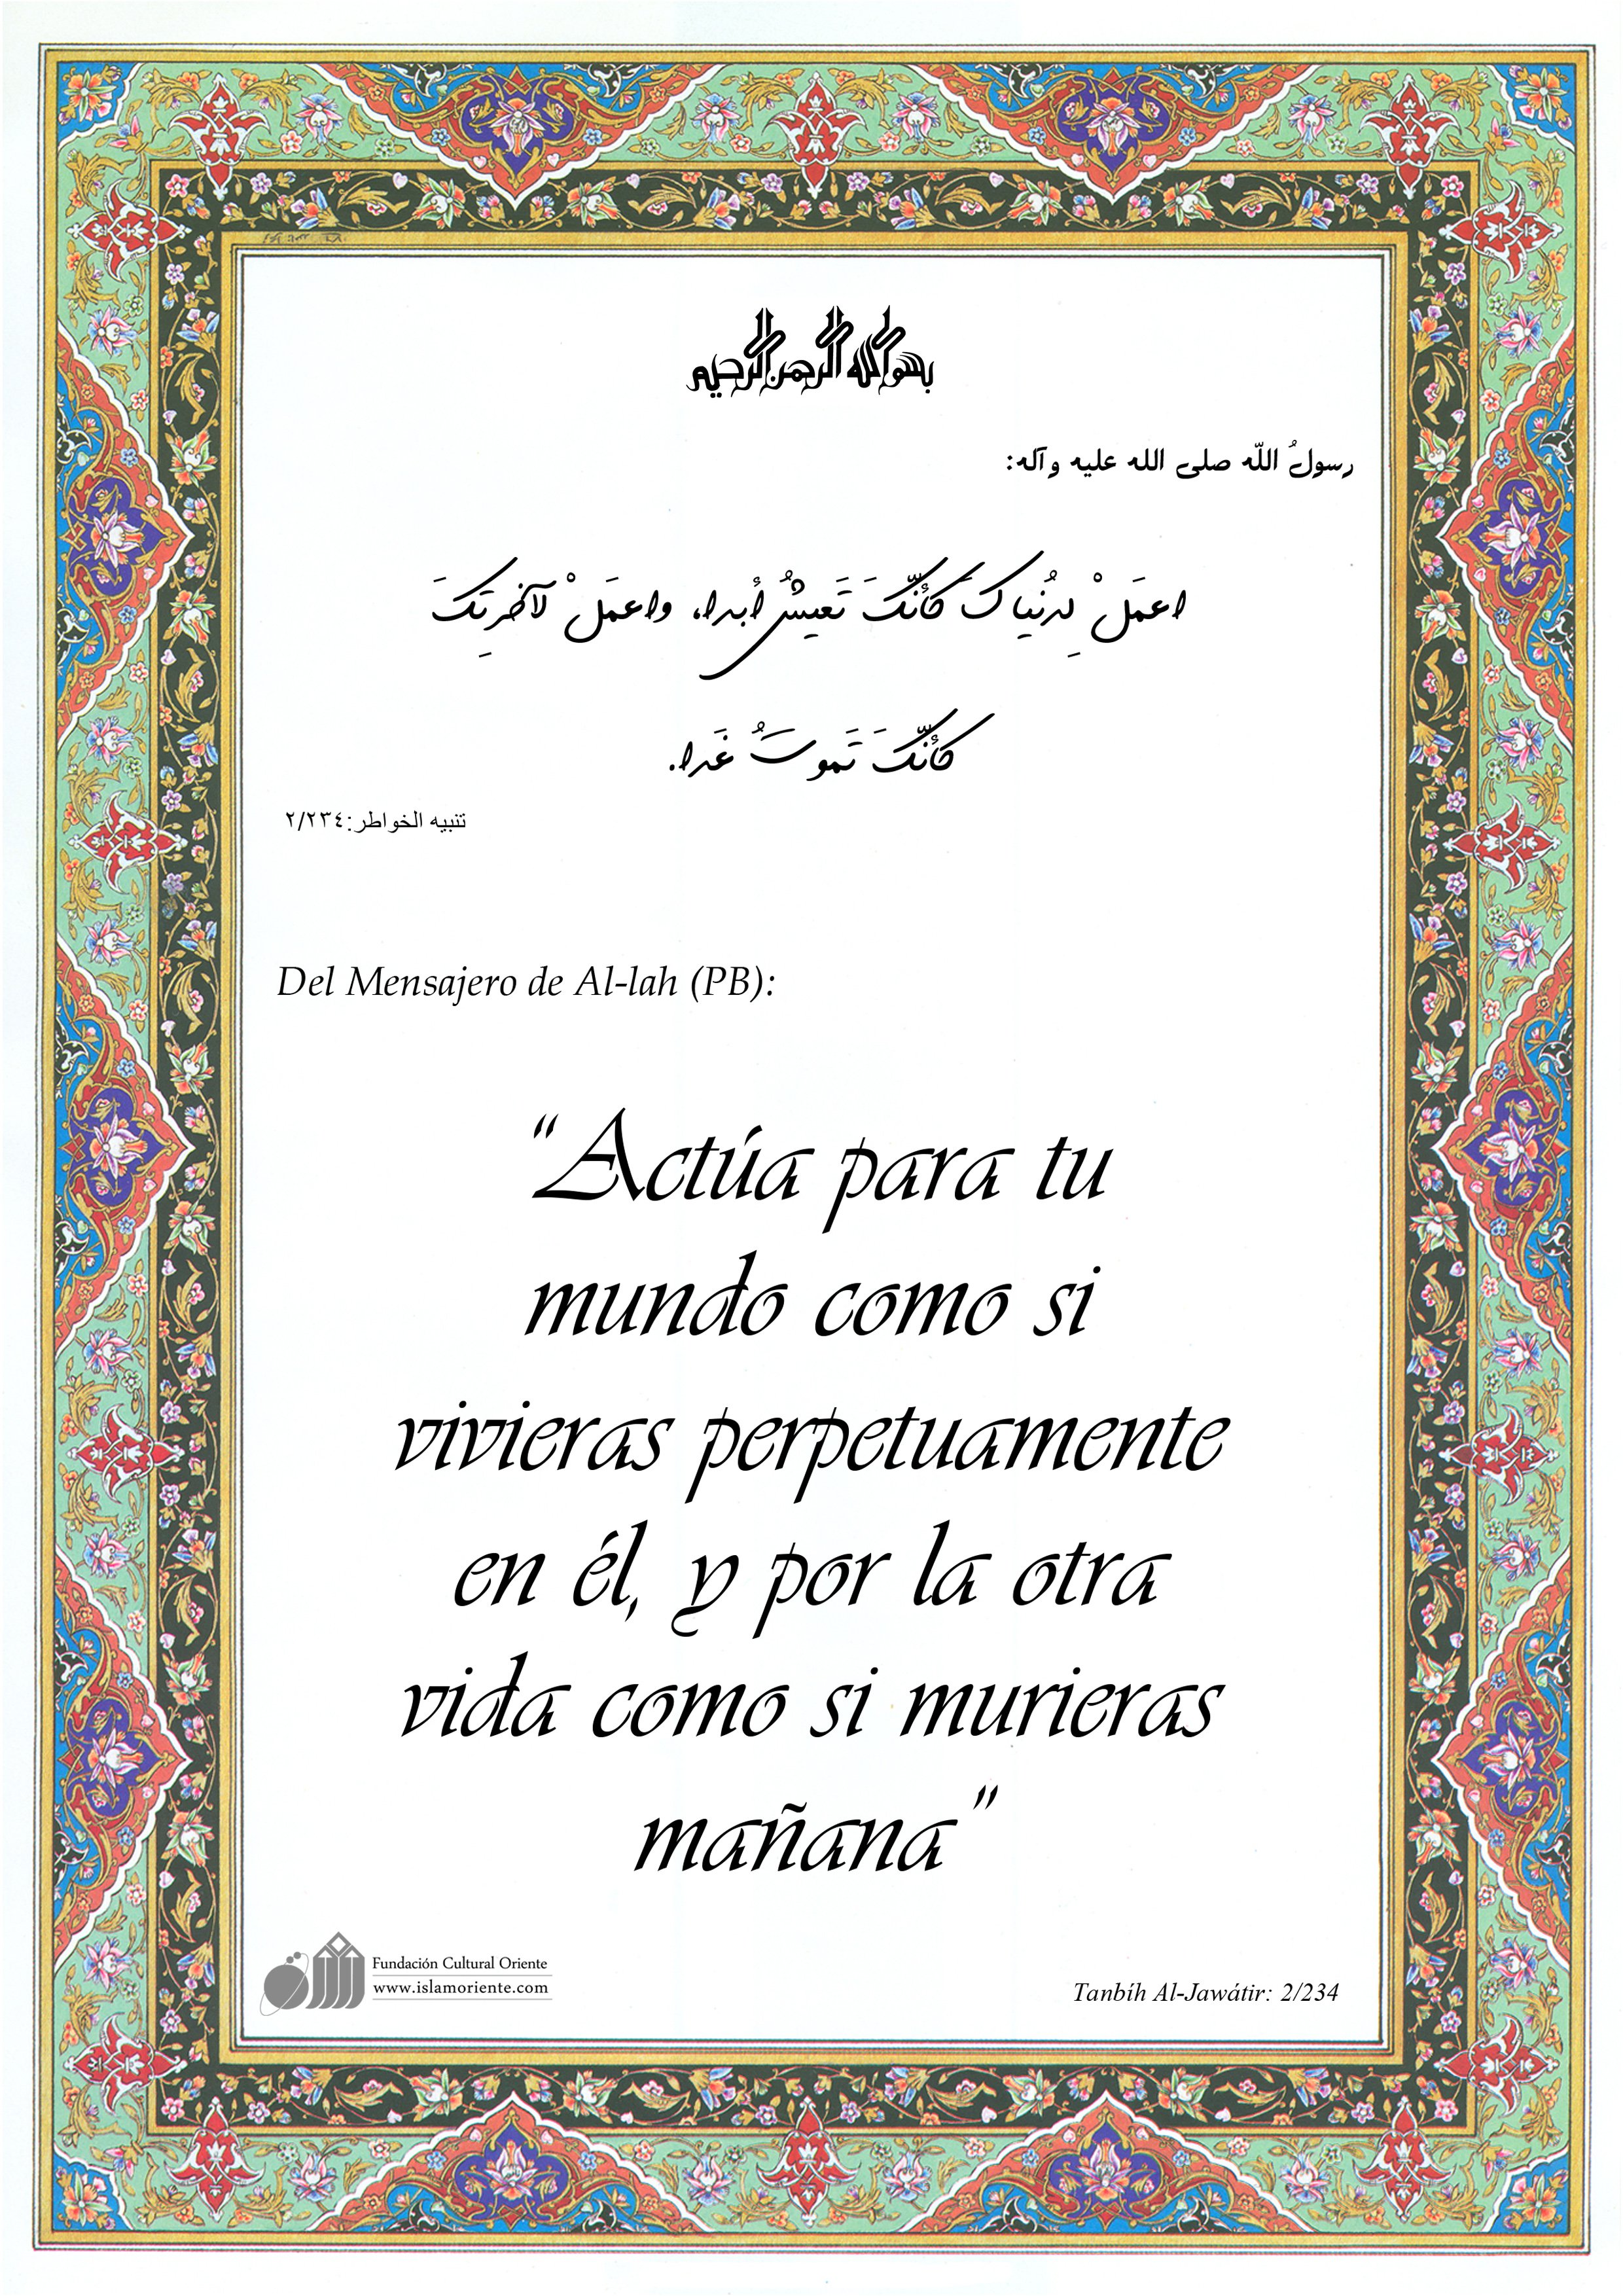 بسم الله الرحمن الرحیم
رسولُ اللّه صلى الله علیه وآله:
اعمَلْ لِدُنیاکَ کأنّکَ تَعیشُ أبدا، واعمَلْ لآخرتِکَ
کأنّکَ تَموتُ غَدا.
تنبيه الخواطر:٢/٢٣٤
Del Mensajero de Al-lah (PB):
“Actúa para tu
mundo como si
vivieras perpetuamente
en él, y por la otra
vida como si murieras
mañana”
Fundación Cultural Oriente
www.islamoriente.com
Tanbíh Al-Jawátir: 2/234